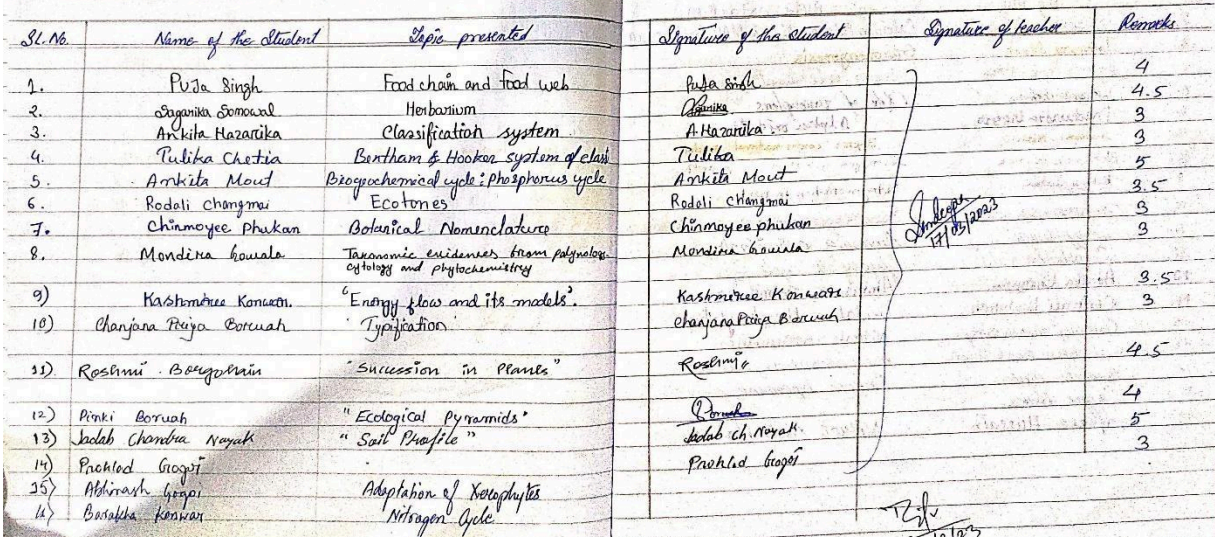 SL. No. Name of the Student Topic presented Signature of the student Signature of teacher Remarks
1. Puja Singh Food chain and food web Puja Singh 4
2. Sagarika Sonowal Herbarium 4.5
3. Ankita Hazarika Classification system. A. Hazarika 3
4. Tulika Chetia Bentham & Hooker system of class Tulika 3
5. Ankita Mout Biogeochemical cycle: Phosphorus cycle Ankita Mout 5
6. Rodali Changmai Ecotones Rodali Changmai 3.5
7. Chinmoyee Phukan Botanical Nomenclature Chinmoyee phukan 17/03/2023 3
8. Mondira Gowala Taxonomic evidences from palynology- Mondira Gowala 3
cytology and phytochemistry
9) Kashmiree Konwar. "Energy flow and its models". Kashmiree Konwar 3.5
10) Chanjana Priya Boruah Typification Chanjana Priya Boruah 3
11) Roshmi Borgohain "Succession in Plants" Roshmi 4.5
12) Pinki Boruah "Ecological Pyramids" 4
13) Jadab Chandra Nayak "Soil Profile" Jadab ch. Nayak 5
14) Prohlad Gogoi Prohlad Gogoi 3
15) Abhinash Gogoi Adaptation of Xerophytes
Barakha Konwar Nitrogen Cycle